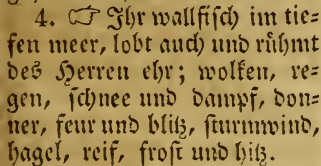 4. ☞ Ihr wallfisch im tie-
fen meer, lobt auch und rühmt
des Herren ehr; wolken, re-
gen, schnee und dampf, don-
ner, feur und blitz, sturmwind,
hagel, reif, frost und hitz.